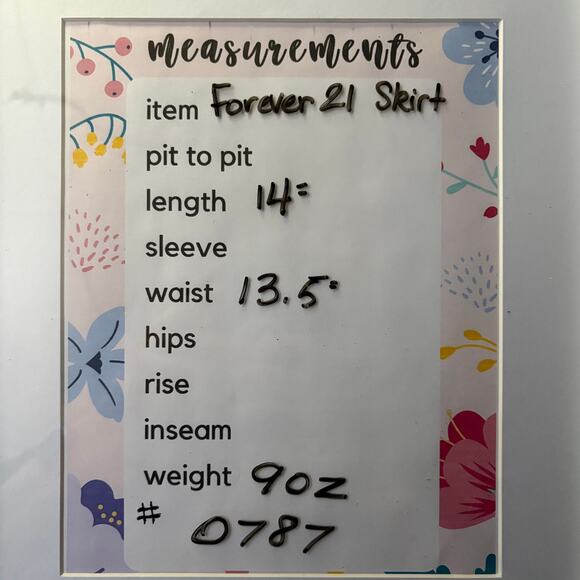 measurements
item Forever 21 Skirt
pit to pit
length 14"
sleeve
waist 13.5"
hips
rise
inseam
weight 9oz
# 0787